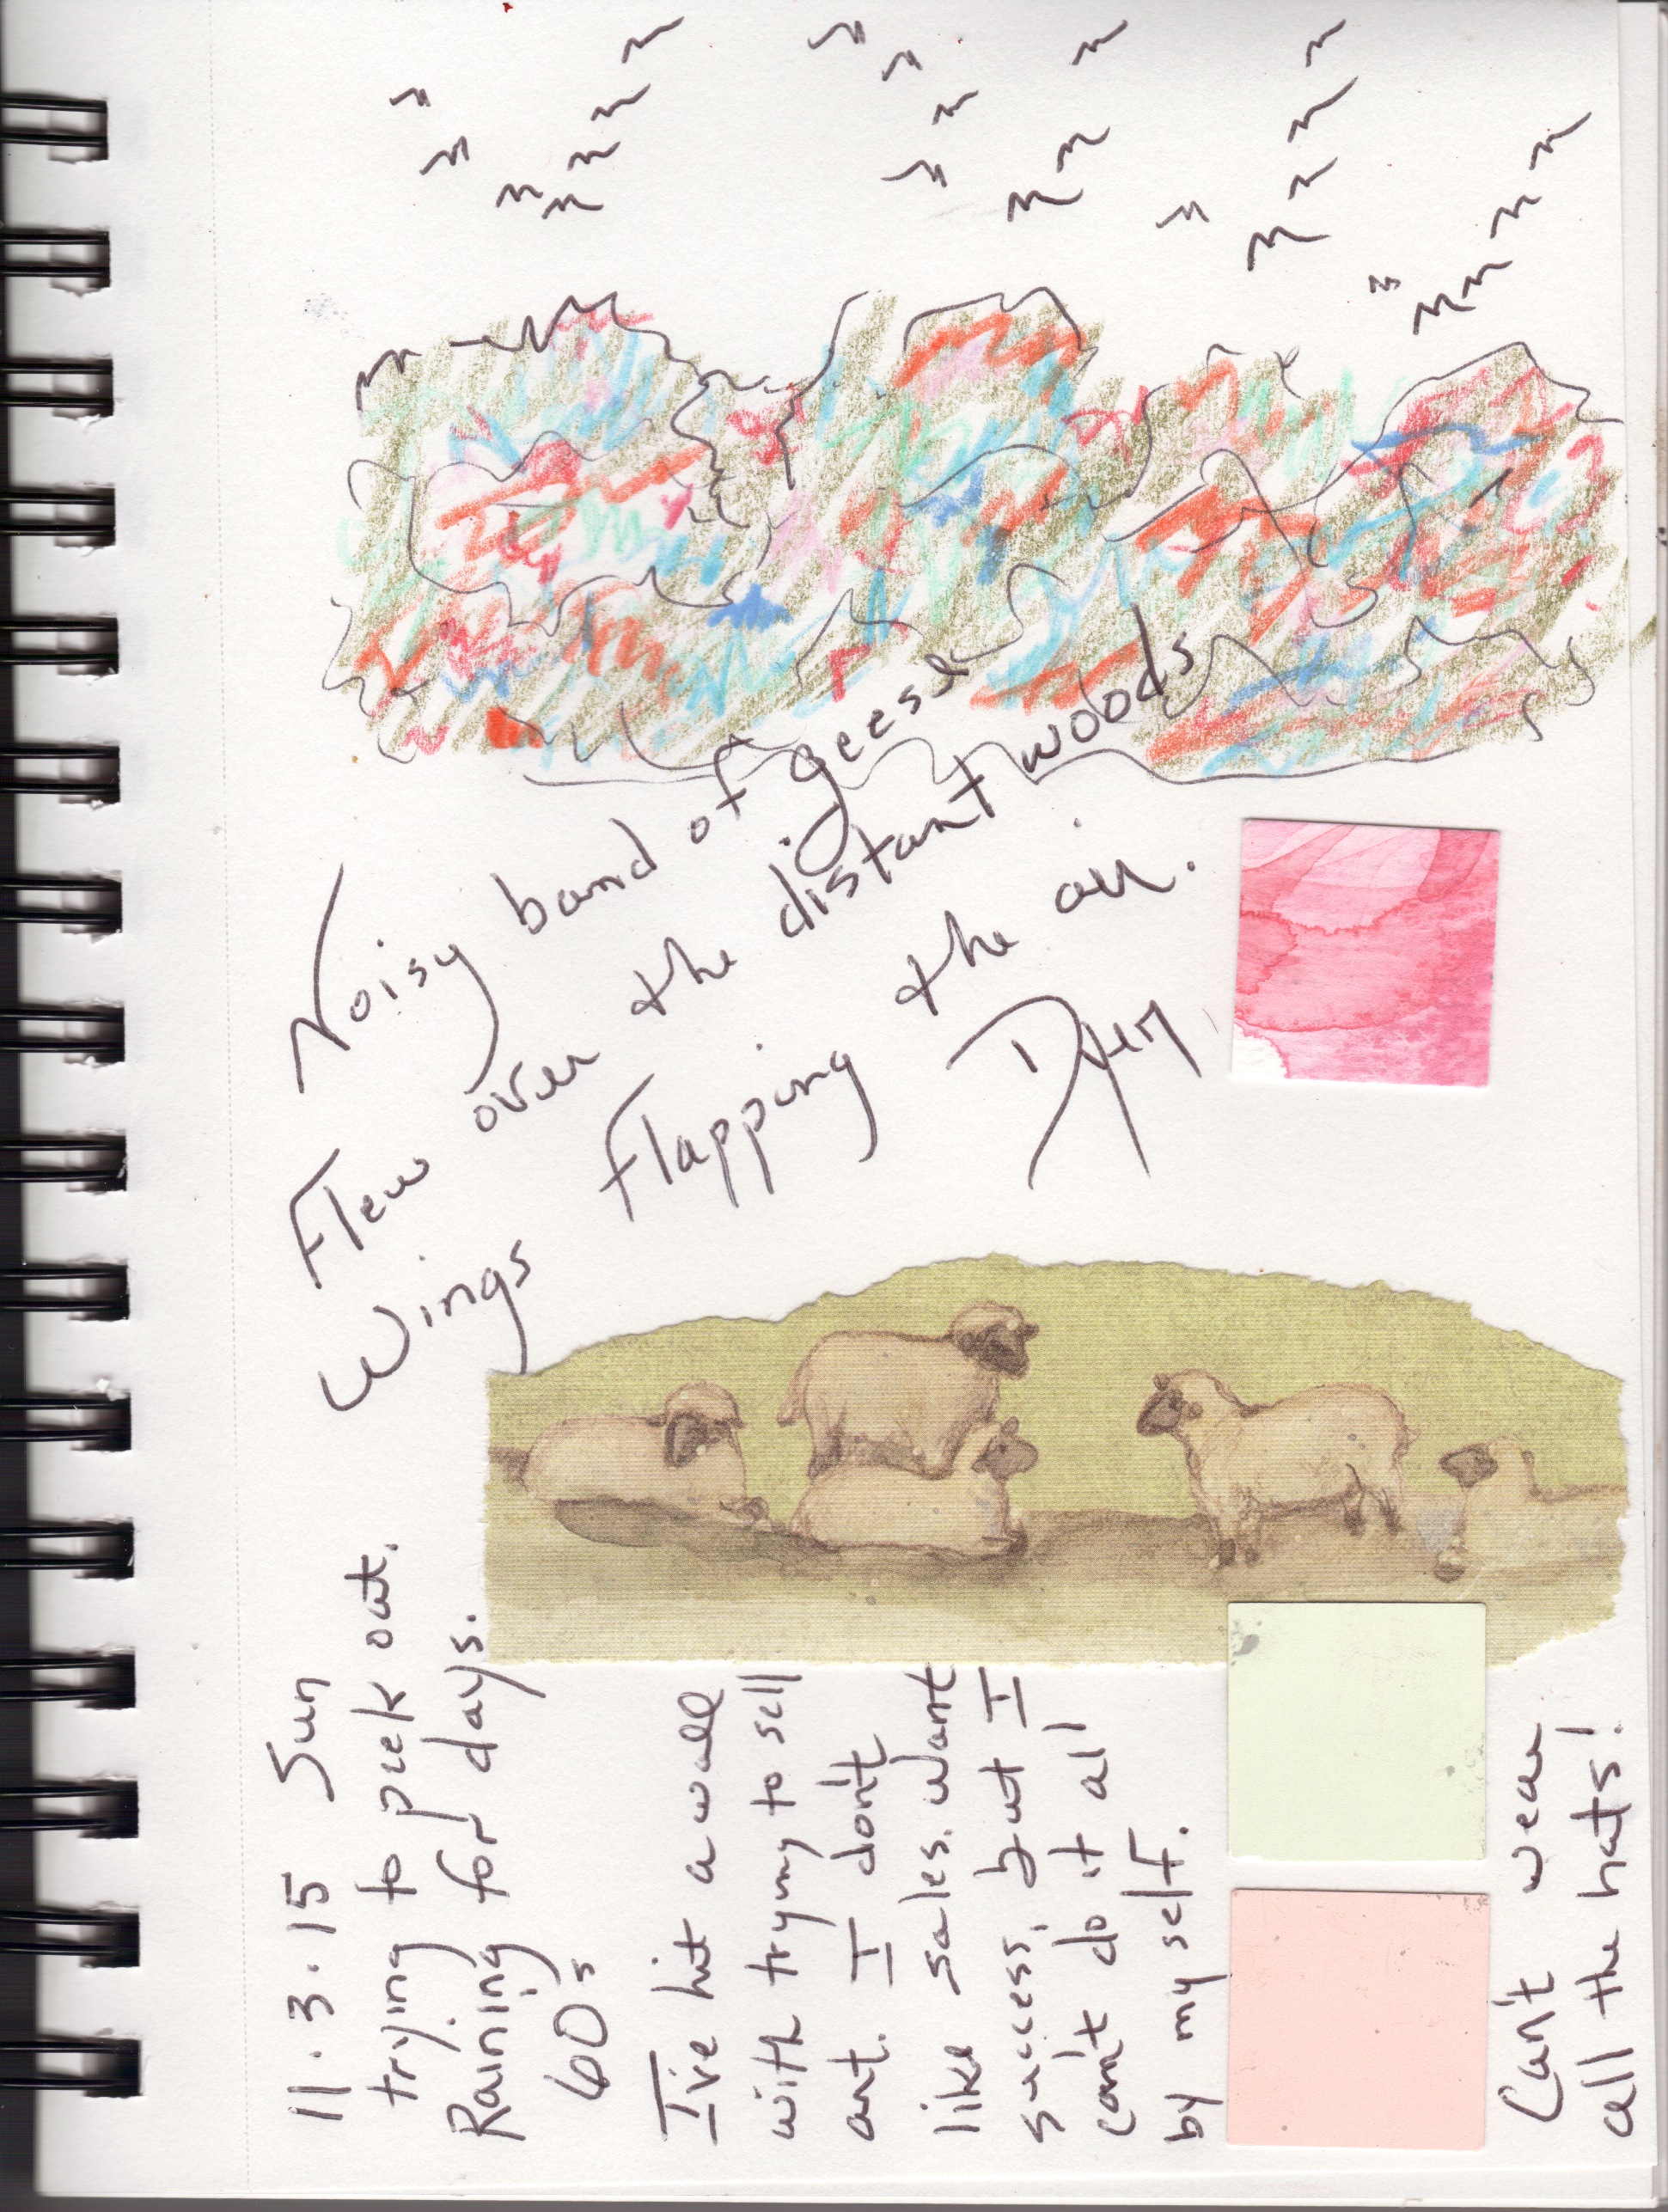 Noisy band of geese
Flew over the distant woods
Wings flapping the air.
Dyer
11.3.15 Sun
trying to peek out.
Raining for days.
60s
I've hit a wall
with trying to sell
art. I don't
like sales. Want
success, but I
can't do it all
by my self.
Can't wear
all the hats!